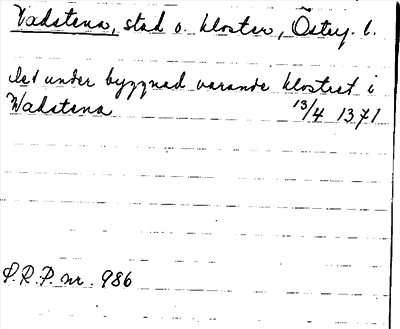 Vadstena, stad o. kloster, Östg. l.
det under byggnad varande klostret i
Wadstena 13/4 1371
P.R.P. nr. 986